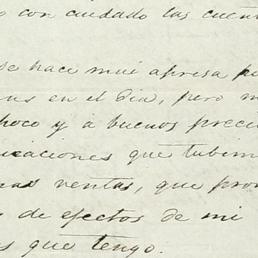 con cuidado las cuent
se hace mui apresa p
en el dia, pero m
poco y a buenos preci
icaciones que tubim
mas ventas, que pro
de efectos de mi
s que tengo.